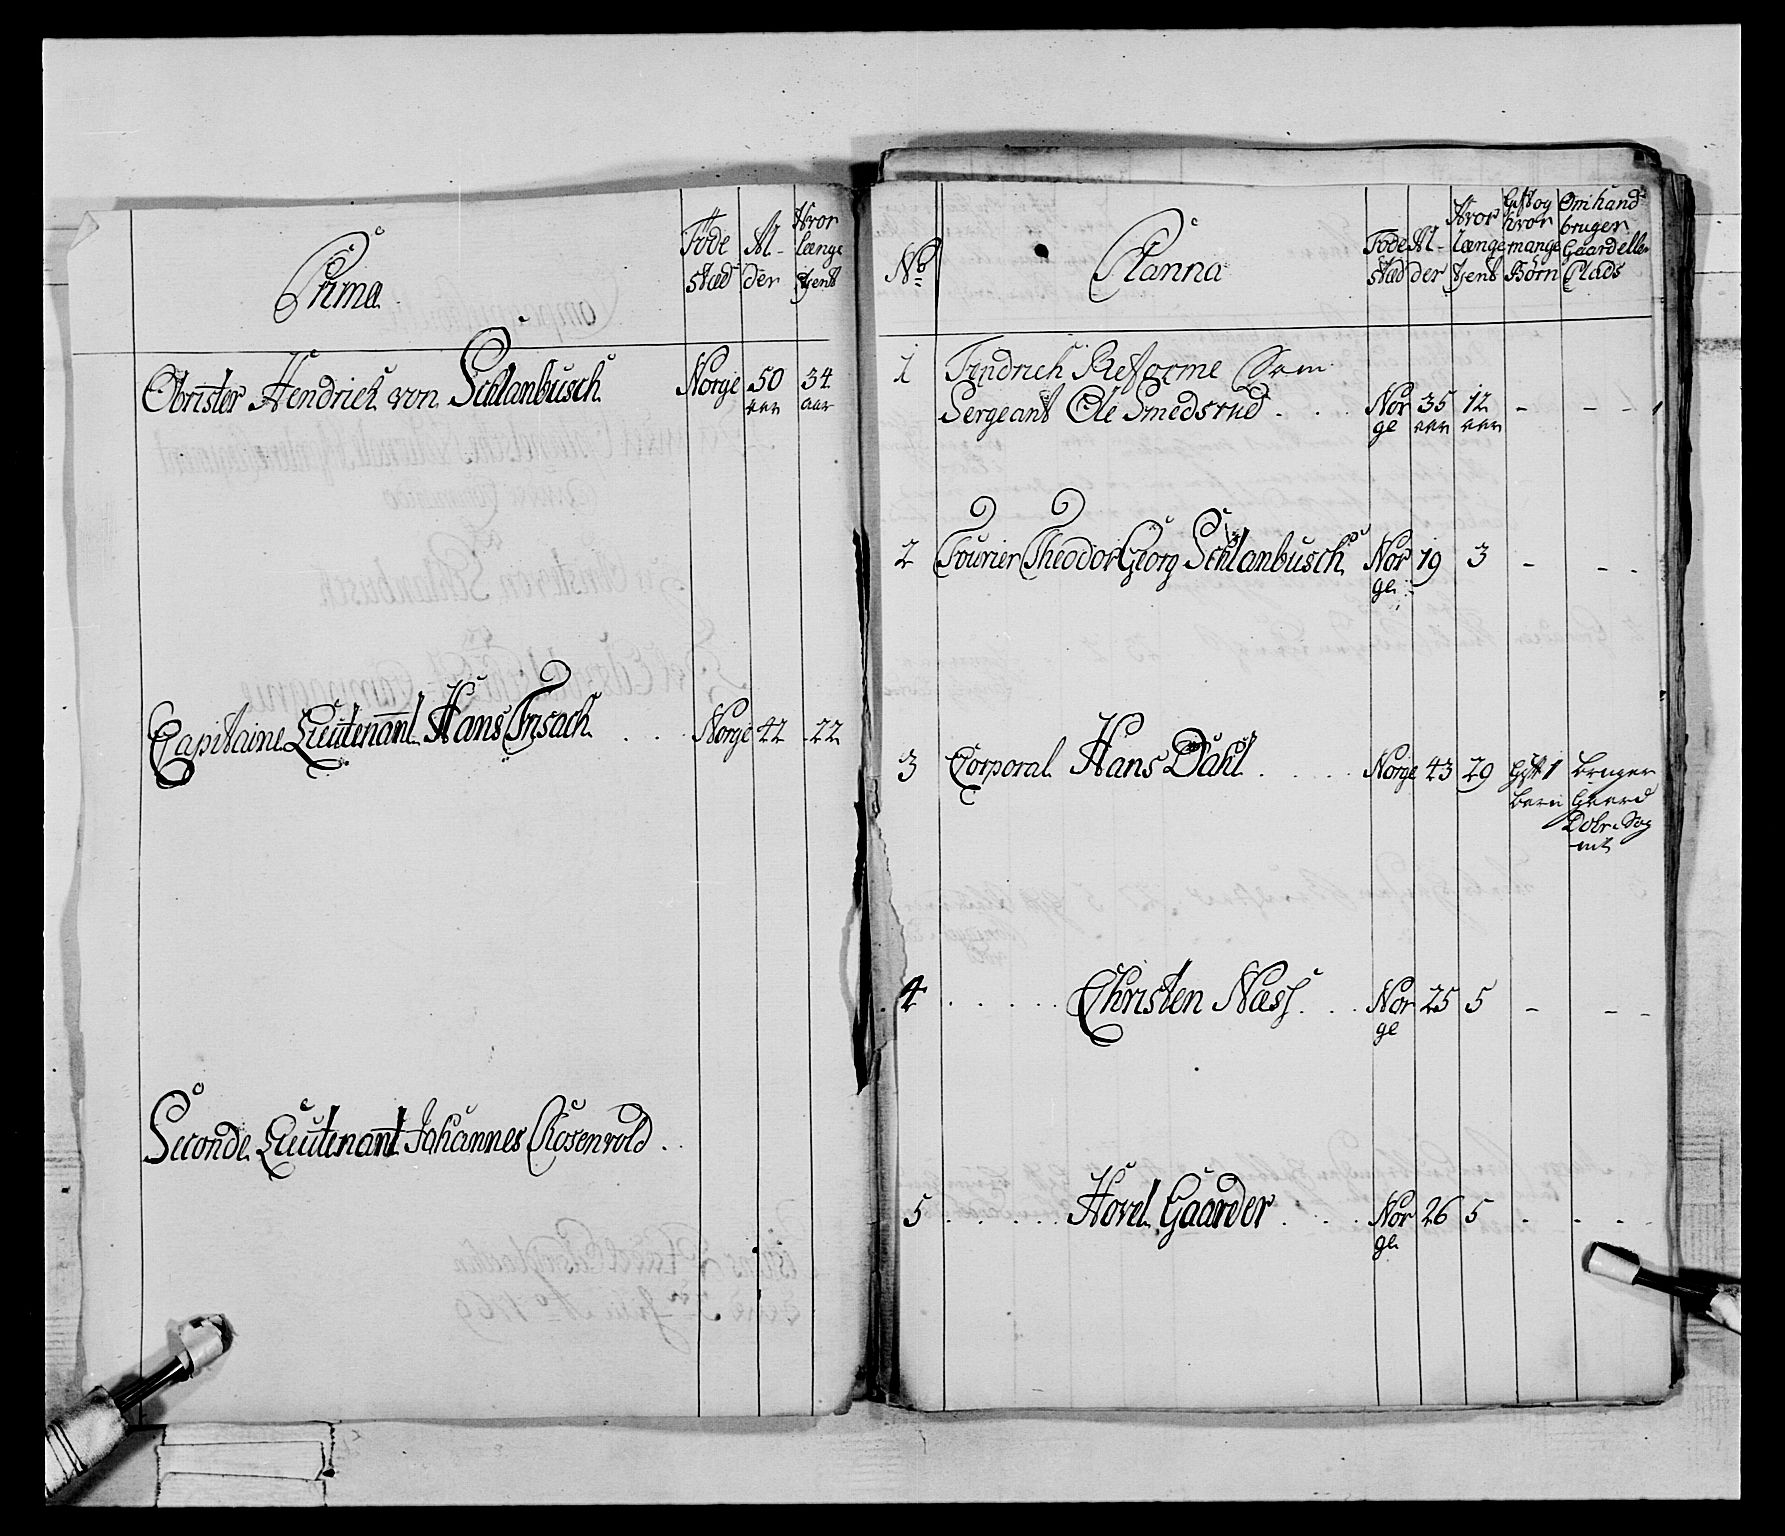 Prima
Føde
stæd
Al-
der
Hvor
længe
tient
Obrister Hendrich von Schlanbusch
Norge
50
aar
34
aar
Capitaine Lieutenant Hans Ensach
Norge
42
22
Seconde Lieutenant Johannes Rosenvold
No
Planna
Føde
stæd
Al-
der
Hvor
længe
tient
Gift og
hvor
mange
Børn
Om hand
bruger
Gaard eller
Plads
1
Fendrich Reforme Som
Sergeant Ole Smedsrud
Nor
ge
35
aar
12
aar
-
- -
2
Fourier Theodor Georg Schlanbusch
Nor
ge
19
3
-
- -
3
Corporal Hans Dahl
Norge
43
29
Gift 1
barn
bruger
Gaard
4
Christen Næss
Nor
ge
25
5
-
- -
5
Hovel Gaarder
Nor
ge
26
5
-
- - -